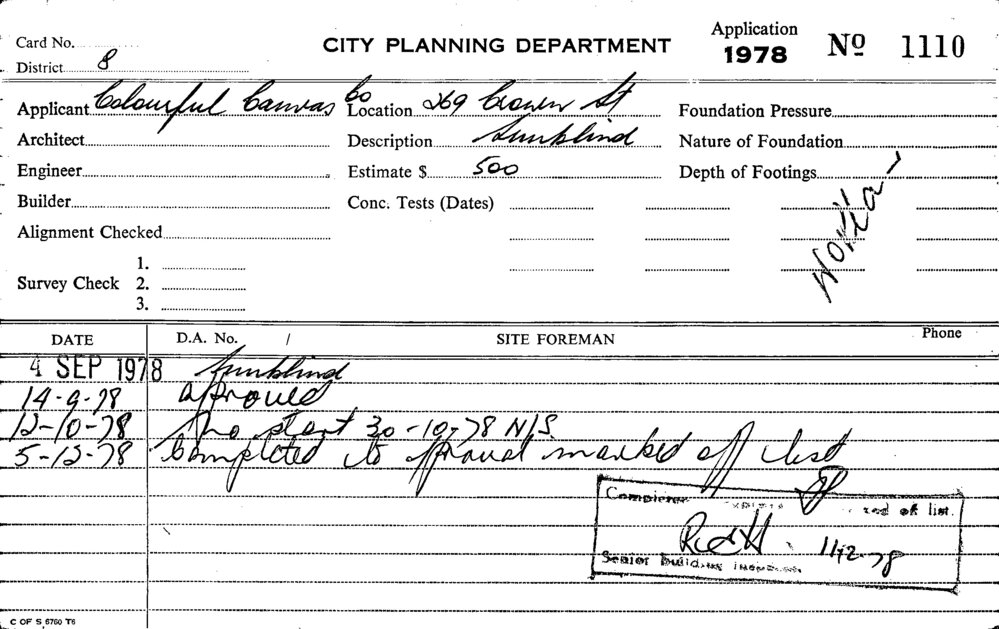 Card No.
CITY PLANNING DEPARTMENT
Application
1978
No 1110
District 8
Applicant Colourful Canvas Co
Location 269 Crown St
Foundation Pressure
Architect
Description Sunblind
Nature of Foundation
Engineer
Estimate $ 500
Depth of Footings
Builder
Conc. Tests (Dates)
Alignment Checked
Survey Check
1.
2.
3.
DATE
D.A. No. /
SITE FOREMAN
Phone
4 SEP 1978 Sunblind
14-9-78 approved
12-10-78 No start 30-10-78 N/S.
5-12-78 Completed to approval marked off list
of list.
11-12-78
Senior Building
C OF S 6760 T6